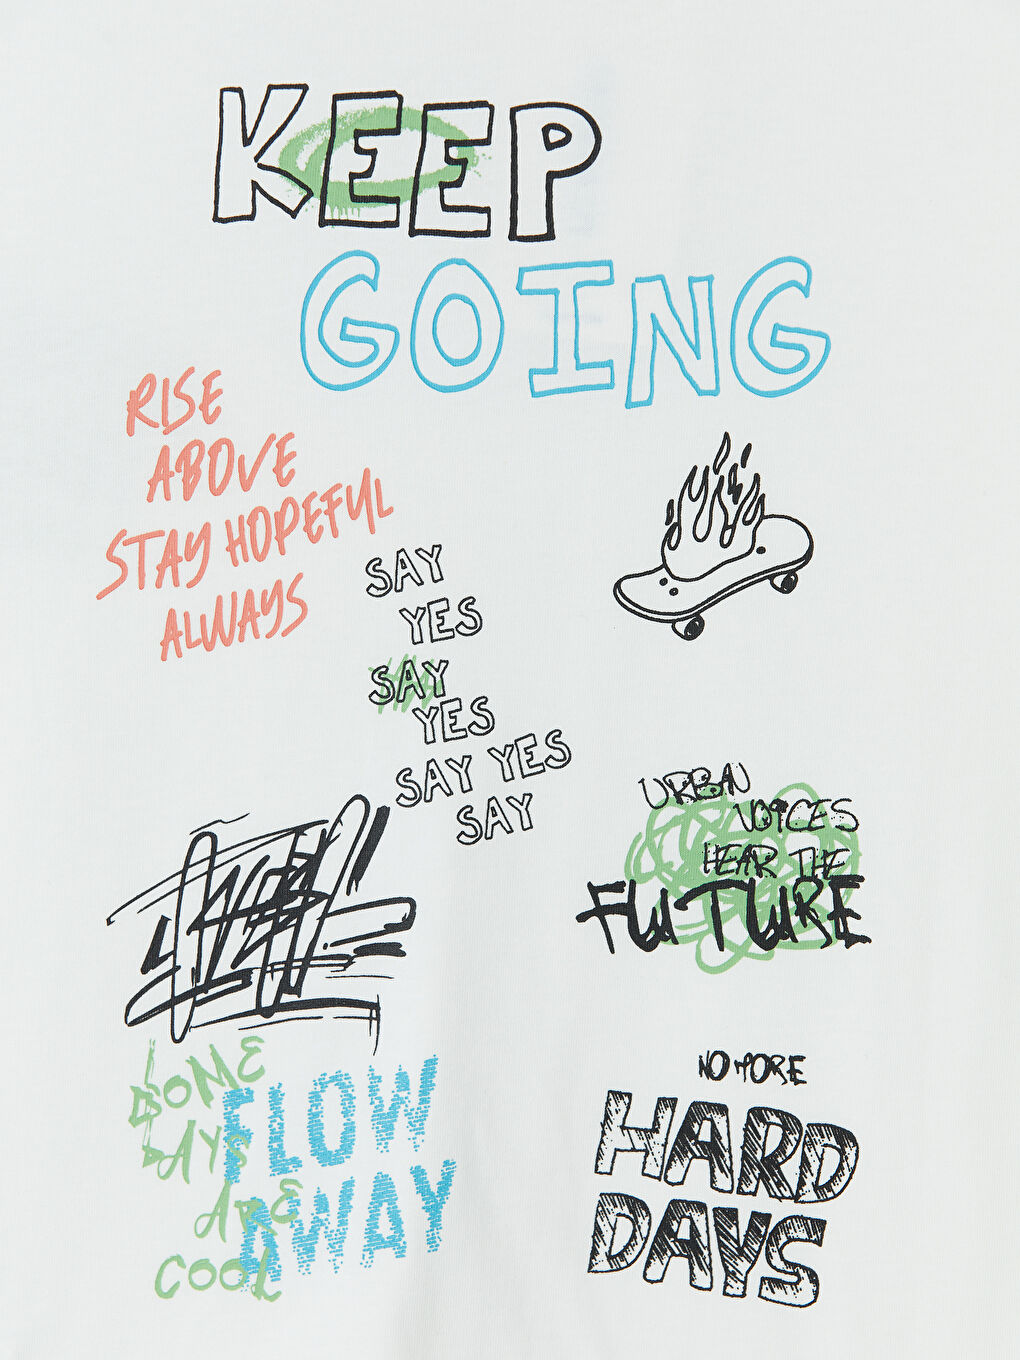 KEEP
GOING
RISE
ABOVE
STAY HOPEFUL
ALWAYS
SAY
YES
SAY
YES
SAY YES
SAY
URBAN
VOICES
HEAR THE
FUTURE
SOME
DAYS
ARE
COOL
FLOW
AWAY
NO MORE
HARD
DAYS